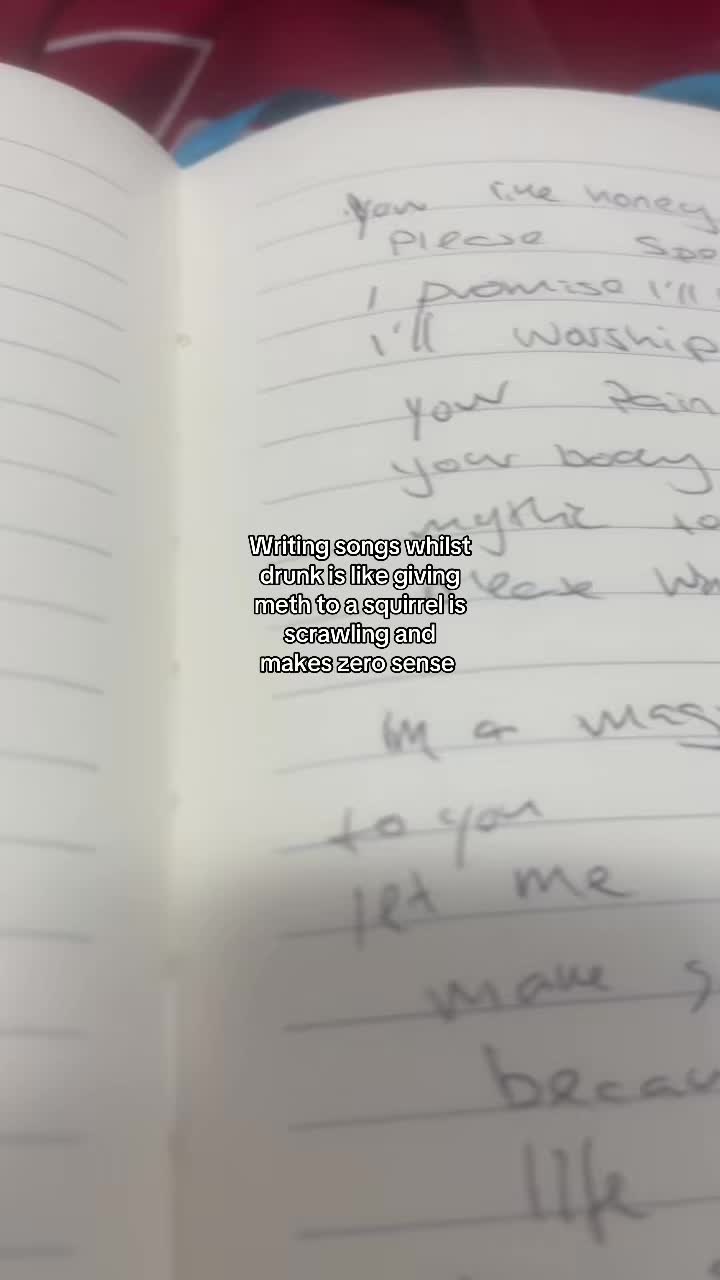 you like honey
please spo
I promise I'll
I'll worship
your Pain
your body
mythic to
please
Writing songs whilst
drunk is like giving
meth to a squirrel is
scrawling and
makes zero sense
im a mag
to you
let me
make s
becau
life